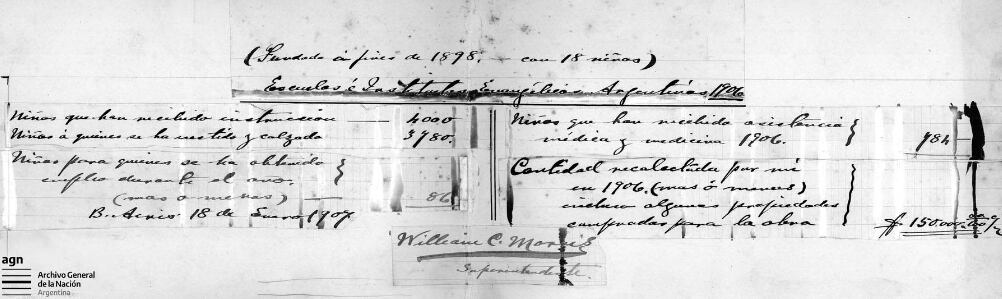 (Fundado á fines de 1898. - con 18 niños)
Escuelas é Institutos Evangélicos Argentinos 1906
Niños que han recibido instrucción — 4000
Niños á quienes se ha vestido y calzado 3780.
Niños para quienes se ha obtenido
empleo durante el año.
(mas o menos) — 86
B. Aires 18 de Enero 1907
Niños que han recibido asistencia
médica y medicina 1906. 784
Cantidad recolectada por mi
en 1906. (mas ó menos)
incluso algunas propiedades
compradas para la obra $ 150.000
William C. Morris
Superintendente.
agn
Archivo General
de la Nación
Argentina